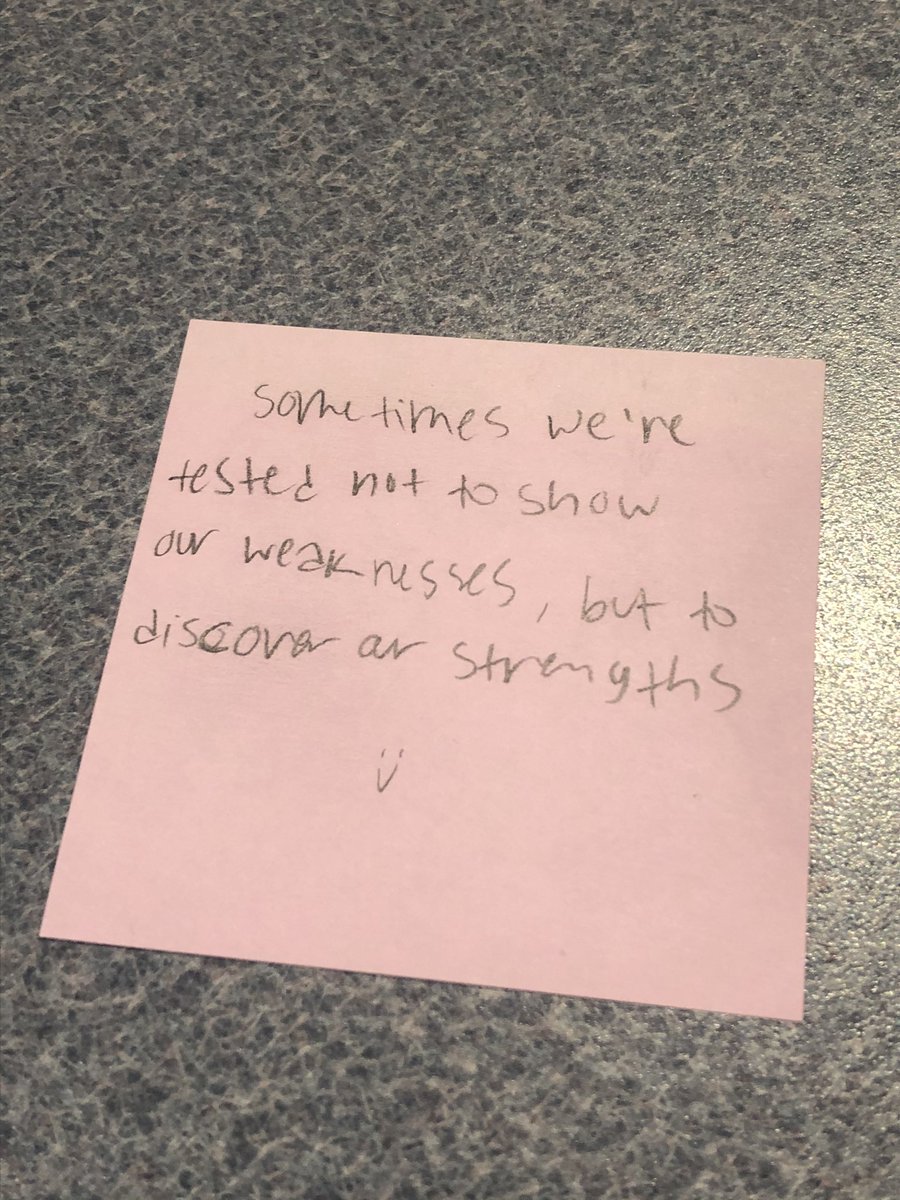 sometimes we're
tested not to show
our weaknesses, but to
discover our strengths